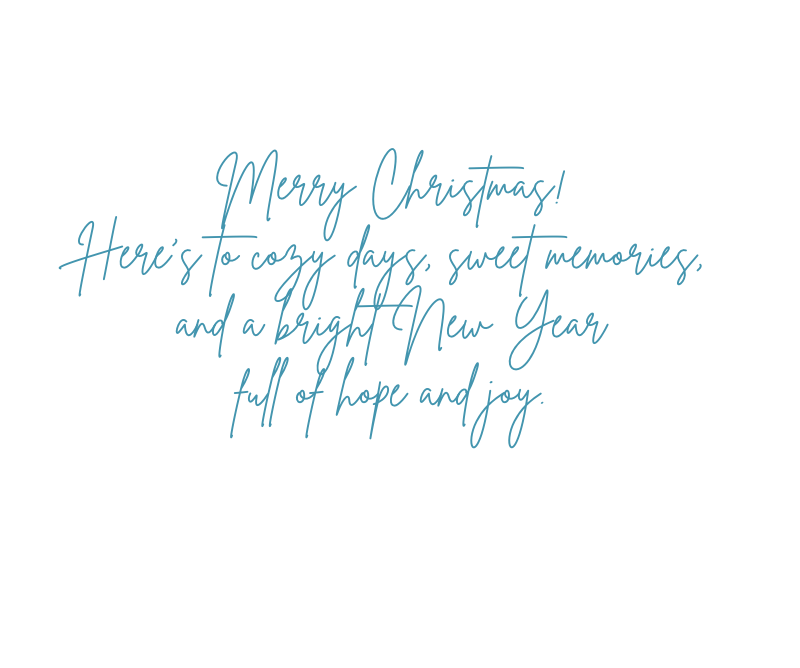 Merry Christmas!
Here's to cozy days, sweet memories,
and a bright New Year
full of hope and joy.